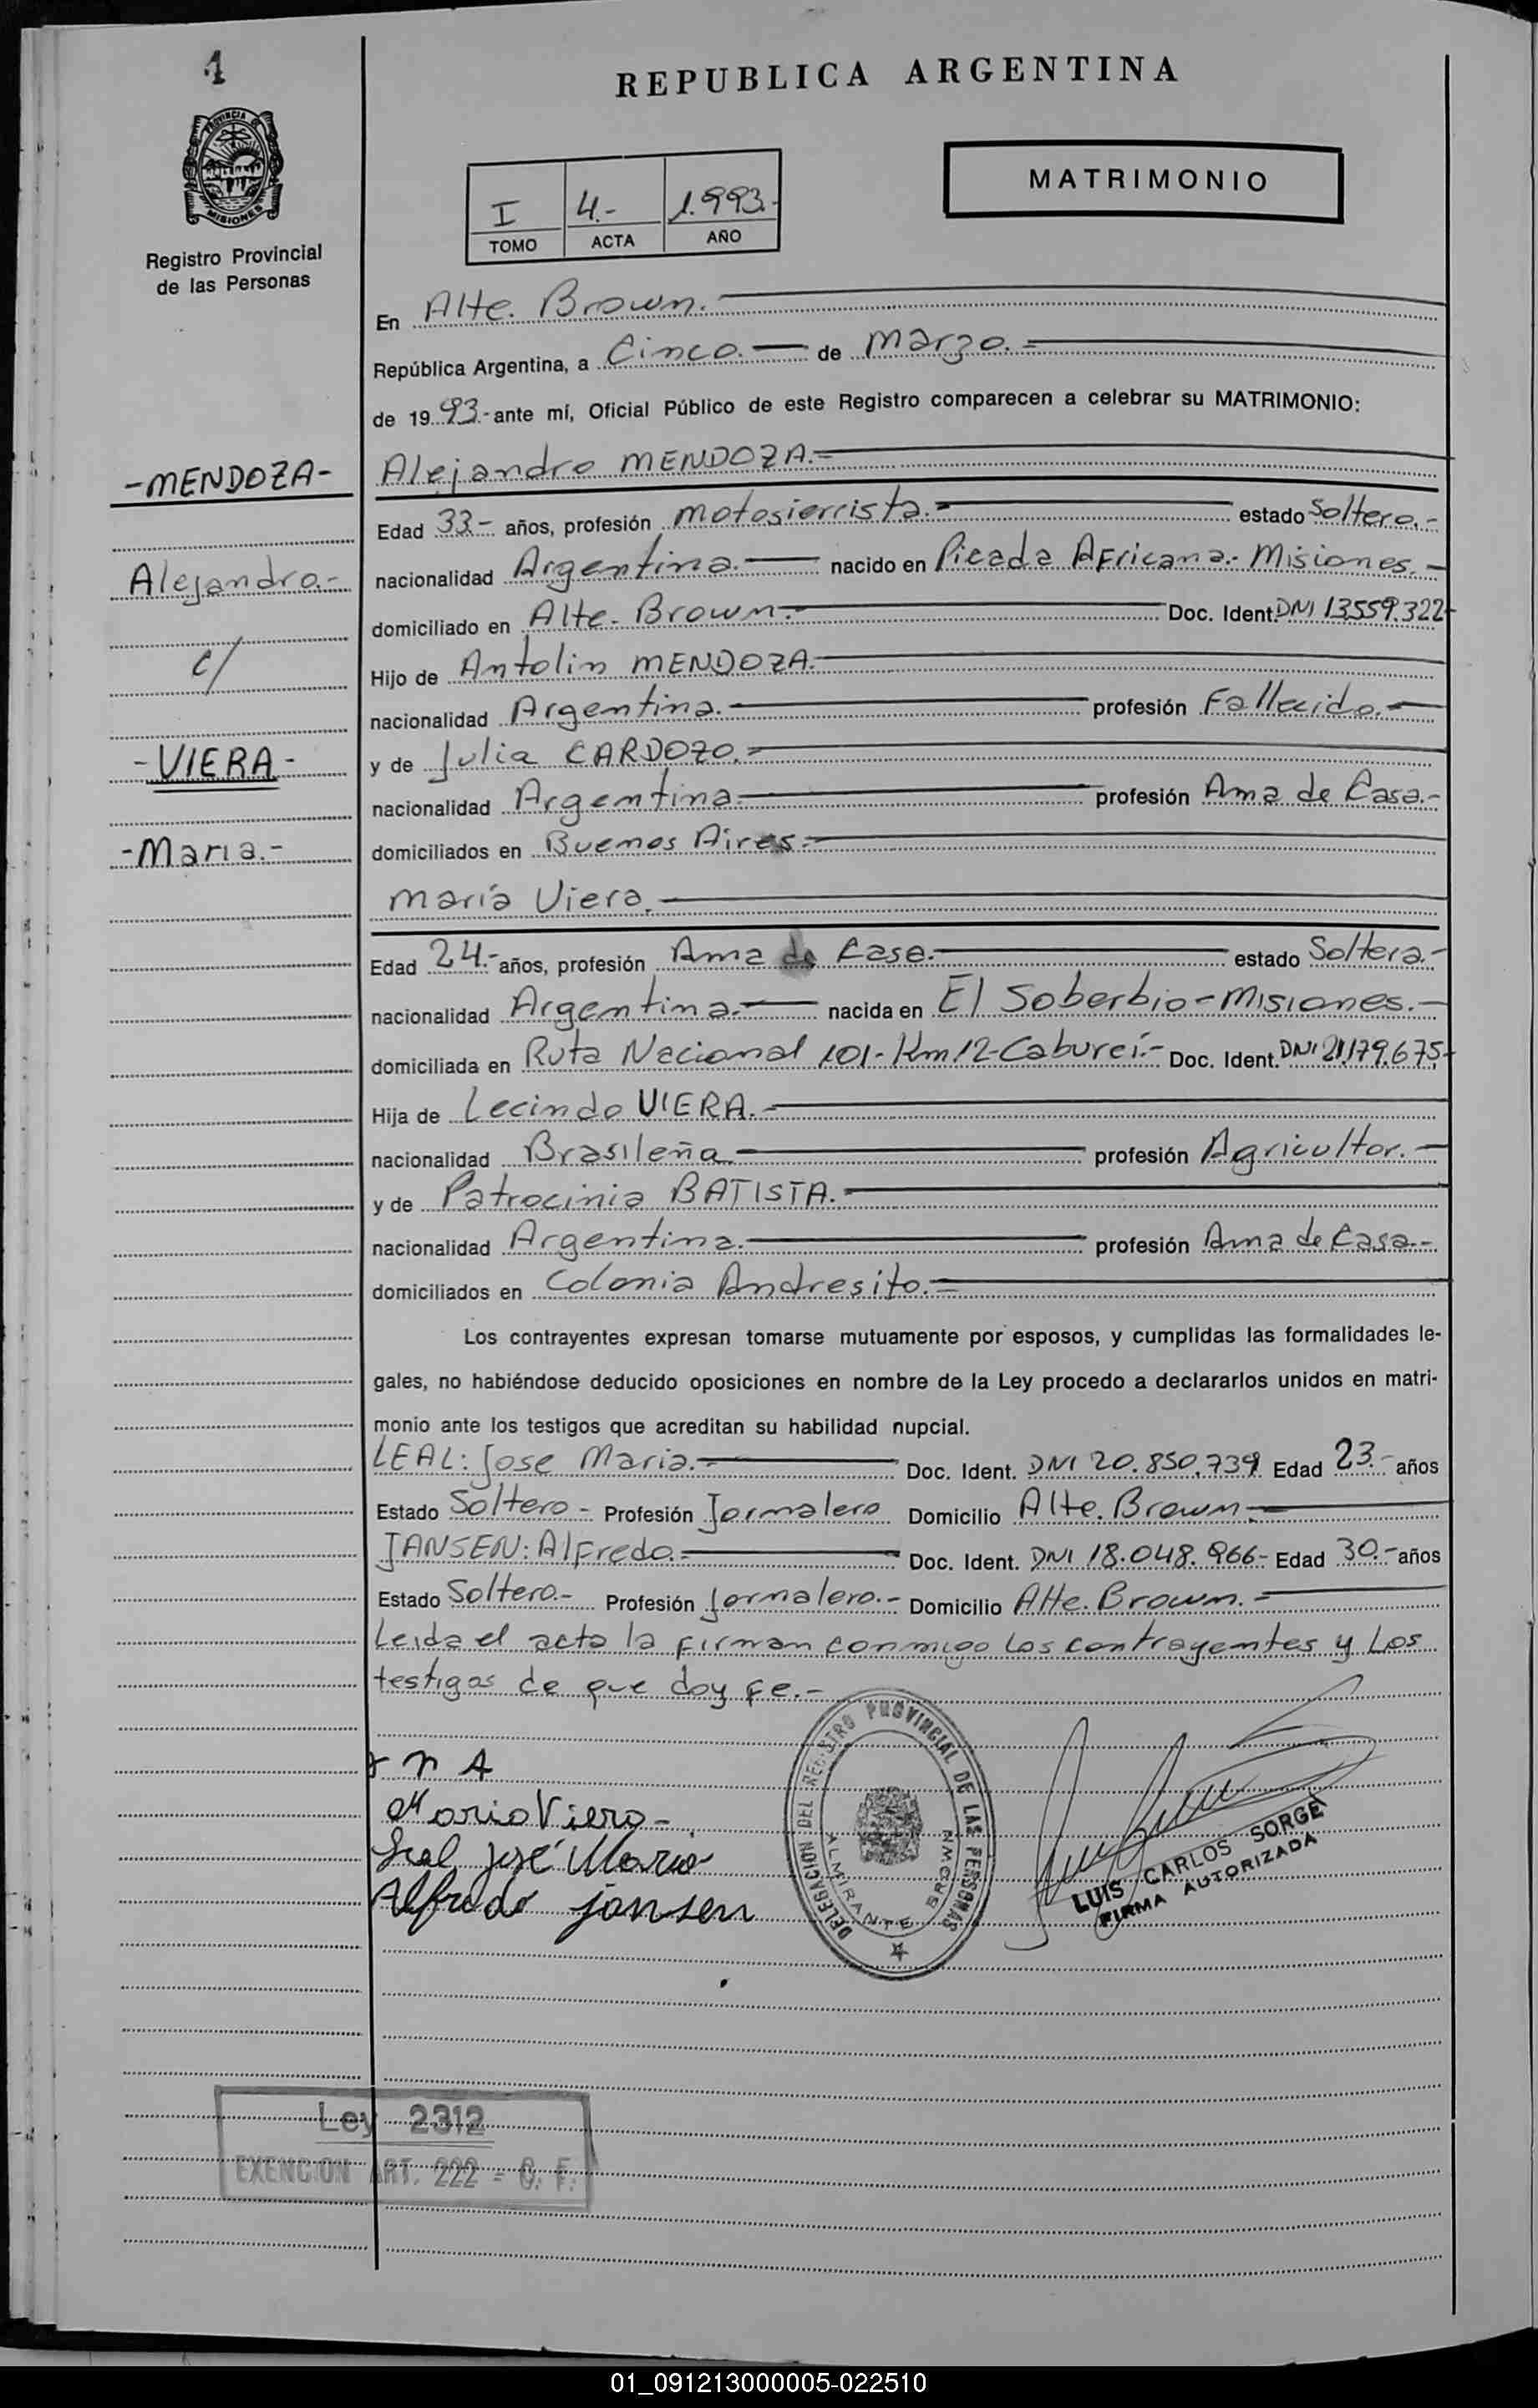 1
REPUBLICA ARGENTINA
PROVINCIA DE
MISIONES
Registro Provincial
de las Personas
I 4.- 1.993.-
TOMO ACTA AÑO
MATRIMONIO
En Alte. Brown.
República Argentina, a Cinco.- de Marzo.=
de 1993.- ante mí, Oficial Público de este Registro comparecen a celebrar su MATRIMONIO:
-MENDOZA-
Alejandro MENDOZA.=
Edad 33.- años, profesión motosierrista.= estado Soltero.-
Alejandro.-
nacionalidad Argentina.- nacido en Picada Africana.- Misiones.-
domiciliado en Alte. Brown.= Doc. Ident. DNI 13.559.322-
c/
Hijo de Antolin MENDOZA.-
nacionalidad Argentina.- profesión Fallecido.-
-VIERA-
y de Julia CARDOZO.=
nacionalidad Argentina.- profesión Ama de Casa.-
-Maria.-
domiciliados en Buenos Aires.=
María Viera.-
Edad 24.- años, profesión Ama de Casa.- estado Soltera.-
nacionalidad Argentina.- nacida en El Soberbio-Misiones.-
domiciliada en Ruta Nacional 101-Km12-Cabureí.- Doc. Ident. DNI 21.179.675,-
Hija de Lecindo VIERA.-
nacionalidad Brasileña.- profesión Agricultor.-
y de Patrocinia BATISTA.-
nacionalidad Argentina.- profesión Ama de Casa.-
domiciliados en Colonia Andresito.=
Los contrayentes expresan tomarse mutuamente por esposos, y cumplidas las formalidades le-
gales, no habiéndose deducido oposiciones en nombre de la Ley procedo a declararlos unidos en matri-
monio ante los testigos que acreditan su habilidad nupcial.
LEAL: Jose Maria.- Doc. Ident. DNI 20.850.739 Edad 23.- años
Estado Soltero - Profesión Jornalero Domicilio Alte. Brown.-
JANSEN: Alfredo.= Doc. Ident. DNI 18.048.966- Edad 30.- años
Estado Soltero.- Profesión Jornalero.- Domicilio Alte. Brown.=
Leida el acta la firman conmigo los contrayentes y los
testigos de que doy fe.-
Maria Viera-
Leal José Maria
Alfredo jansen
DELEGACION DEL REGISTRO PROVINCIAL DE LAS PERSONAS
ALMIRANTE BROWN
LUIS CARLOS SORGE
FIRMA AUTORIZADA
Ley 2312
EXENCION ART. 222 = C. F.
01_091213000005-022510